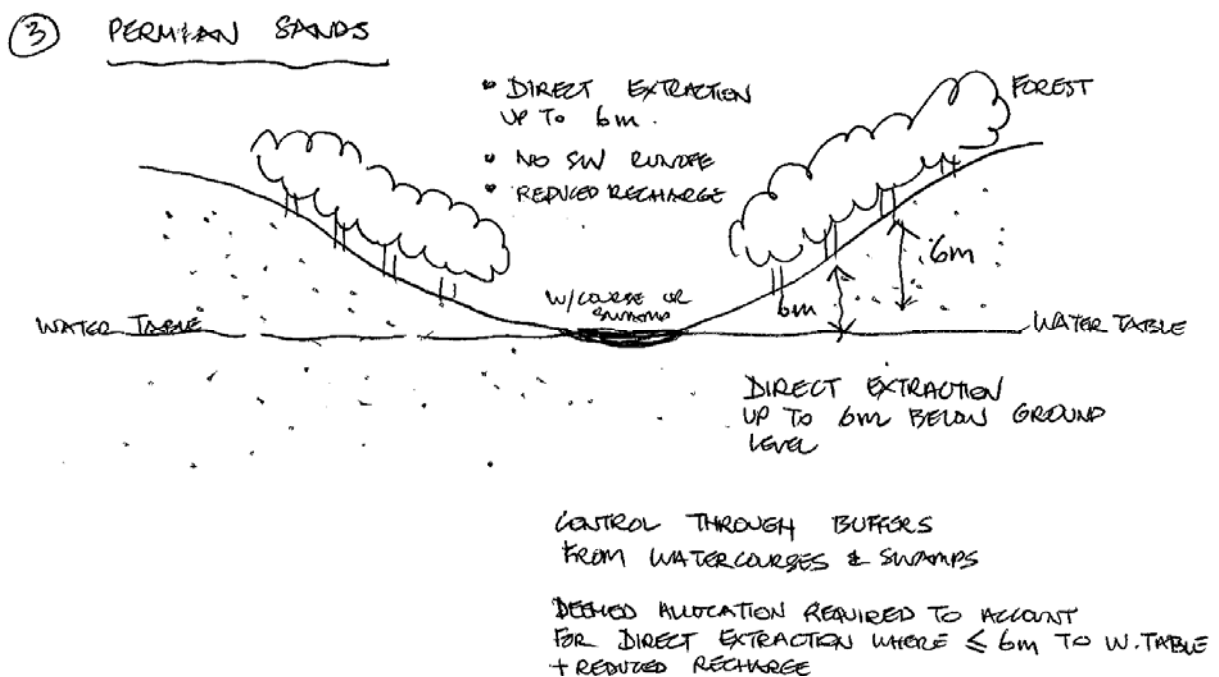 3 PERMIAN SANDS
• DIRECT EXTRACTION
UP TO 6m.
• NO SW RUNOFF
• REDUCED RECHARGE
FOREST
6m
W/COURSE OR
SWAMP
6m
WATER TABLE
WATER TABLE
DIRECT EXTRACTION
UP TO 6m BELOW GROUND
LEVEL
CONTROL THROUGH BUFFERS
FROM WATERCOURSES & SWAMPS
DEEMED ALLOCATION REQUIRED TO ACCOUNT
FOR DIRECT EXTRACTION WHERE ≤ 6m TO W.TABLE
+ REDUCED RECHARGE